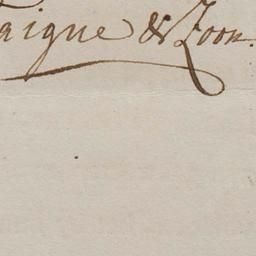 aigne & Zoon.